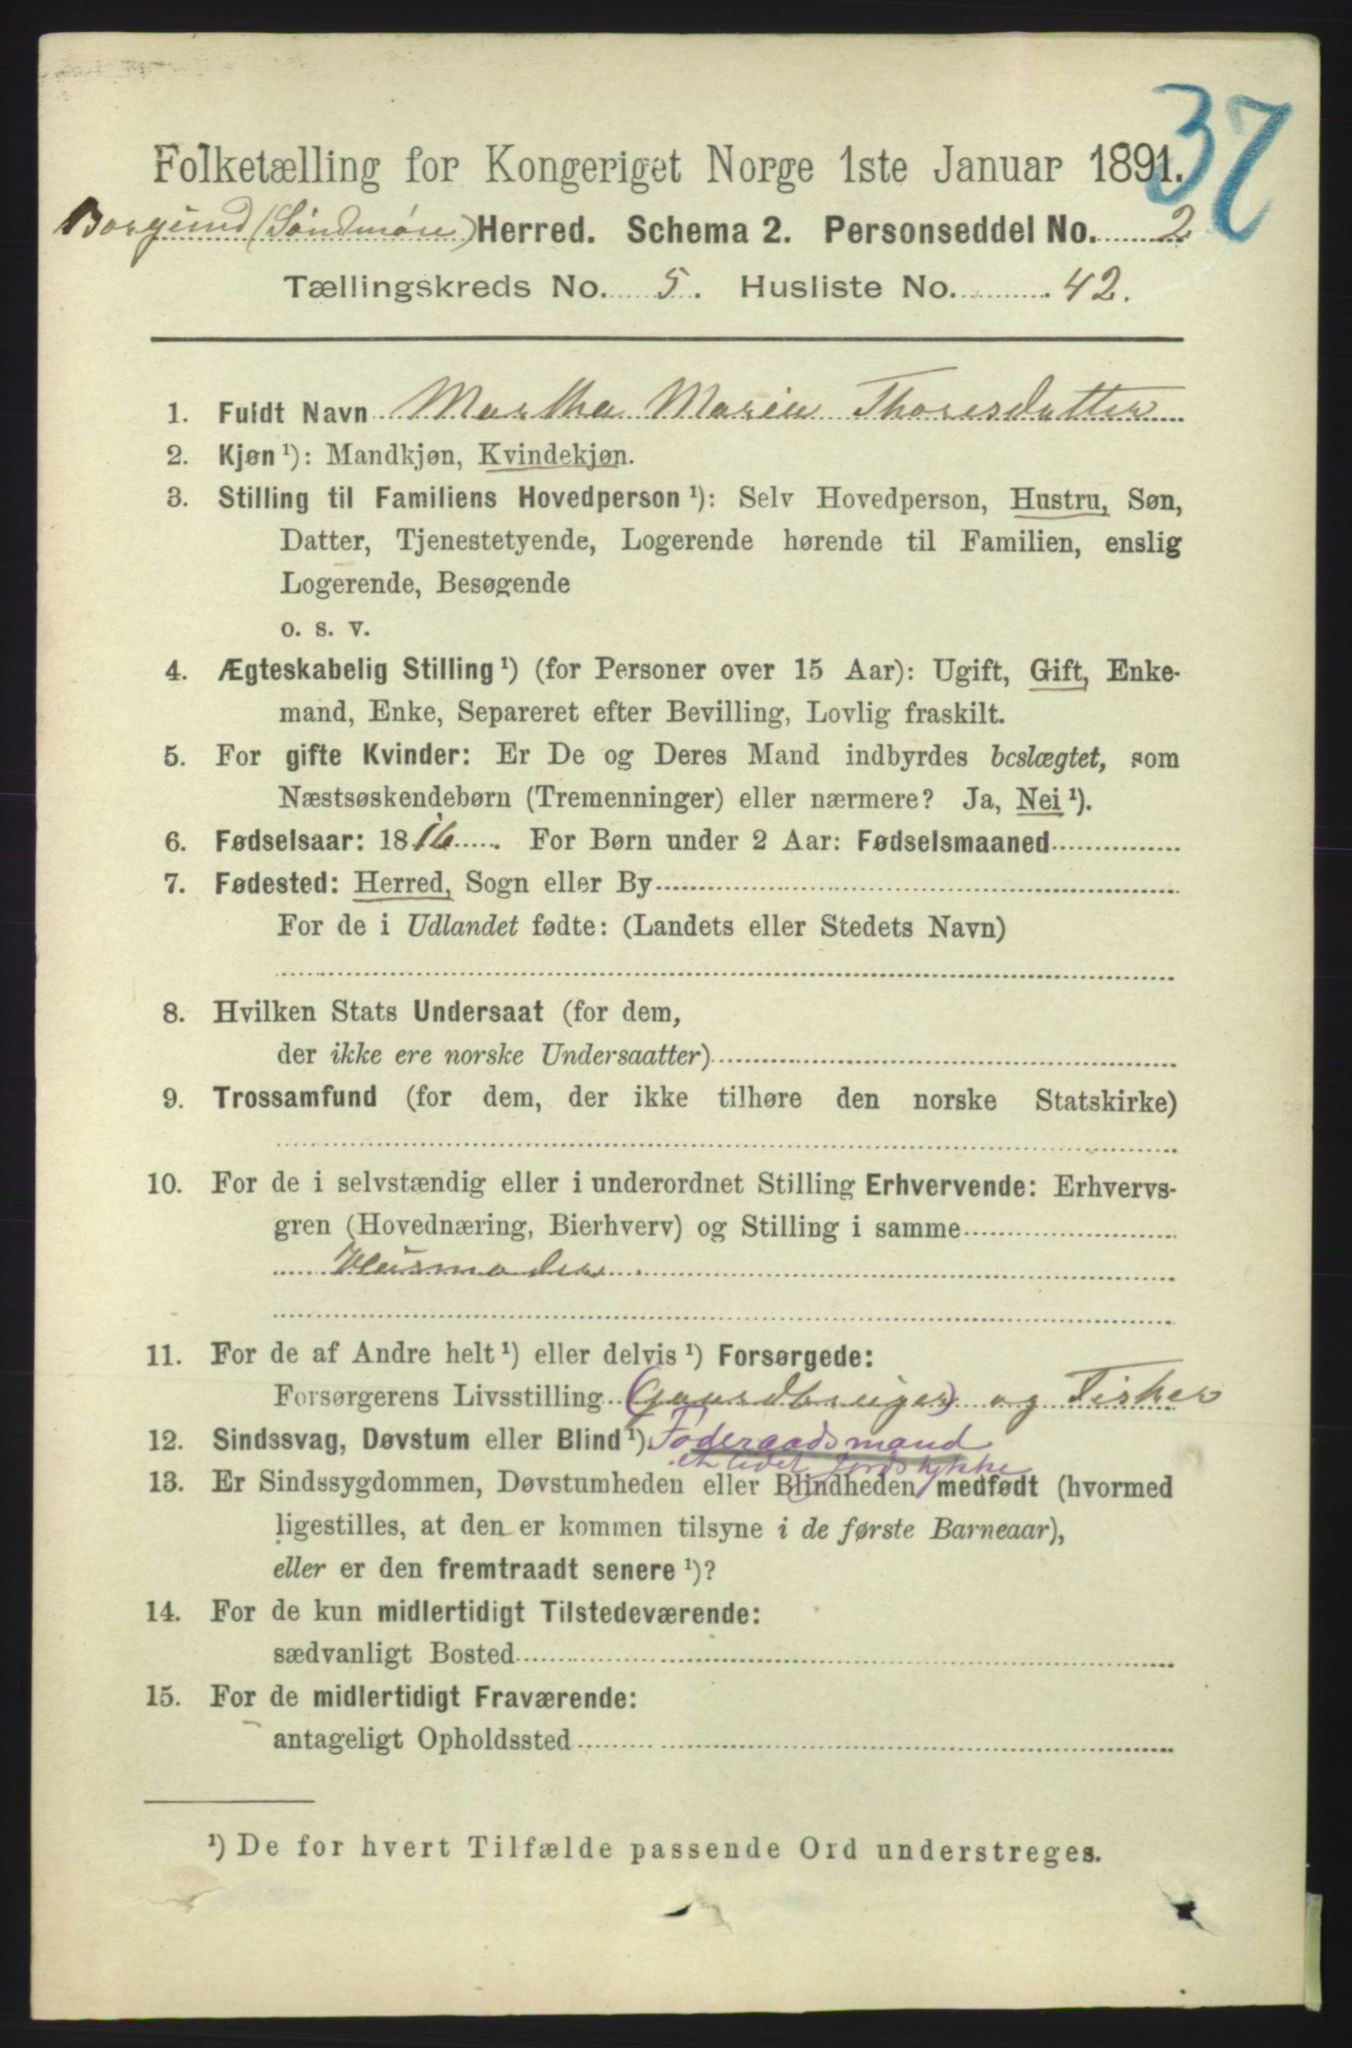 37
Folketælling for Kongeriget Norge 1ste Januar 1891.
Borgund (Søndmøre) Herred. Schema 2. Personseddel No. 2
Tællingskreds No. 5. Husliste No. 42.
1. Fuldt Navn Martha Marie Thoresdatter
2. Kjøn ¹): Mandkjøn, Kvindekjøn.
3. Stilling til Familiens Hovedperson ¹): Selv Hovedperson, Hustru, Søn,
Datter, Tjenestetyende, Logerende hørende til Familien, enslig
Logerende, Besøgende
o. s. v.
4. Ægteskabelig Stilling ¹) (for Personer over 15 Aar): Ugift, Gift, Enke-
mand, Enke, Separeret efter Bevilling, Lovlig fraskilt.
5. For gifte Kvinder: Er De og Deres Mand indbyrdes beslægtet, som
Næstsøskendebørn (Tremenninger) eller nærmere? Ja, Nei ¹).
6. Fødselsaar: 1816. For Børn under 2 Aar: Fødselsmaaned
7. Fødested: Herred, Sogn eller By
For de i Udlandet fødte: (Landets eller Stedets Navn)
8. Hvilken Stats Undersaat (for dem,
der ikke ere norske Undersaatter)
9. Trossamfund (for dem, der ikke tilhøre den norske Statskirke)
10. For de i selvstændig eller i underordnet Stilling Erhvervende: Erhvervs-
gren (Hovednæring, Bierhverv) og Stilling i samme
Husmoder.
11. For de af Andre helt ¹) eller delvis ¹) Forsørgede:
Forsørgerens Livsstilling (Gaardbruger) og Fisker
12. Sindssvag, Døvstum eller Blind ¹). Føderaadsmand
et lidet Jordstykke
13. Er Sindssygdommen, Døvstumheden eller Blindheden medfødt (hvormed
ligestilles, at den er kommen tilsyne i de første Barneaar),
eller er den fremtraadt senere ¹)?
14. For de kun midlertidigt Tilstedeværende:
sædvanligt Bosted
15. For de midlertidigt Fraværende:
antageligt Opholdssted
¹) De for hvert Tilfælde passende Ord understreges.